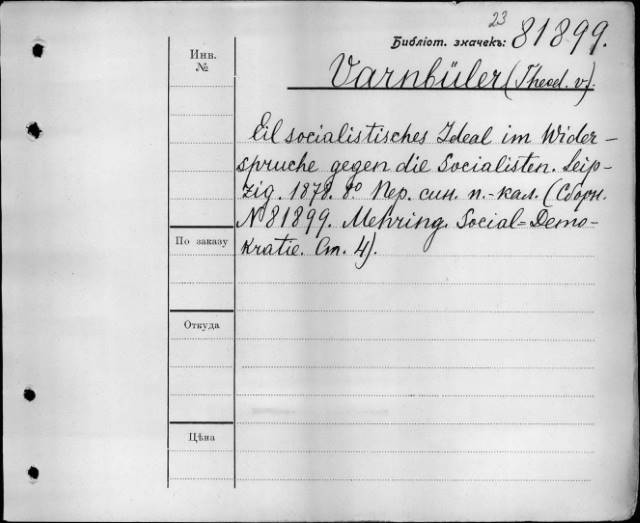 23
Библіот. значекъ: 81899.
Инв.
№
Varnbüler (Theod. v.).
Eil socialistisches Ideal im Wider-
spruche gegen die Socialisten. Leip-
zig. 1878. 8º Пер. син. п.-кал. (Сборн.
№ 81899. Mehring. Social=Demo-
kratie. Ст. 4).
По заказу
Откуда
Цѣна